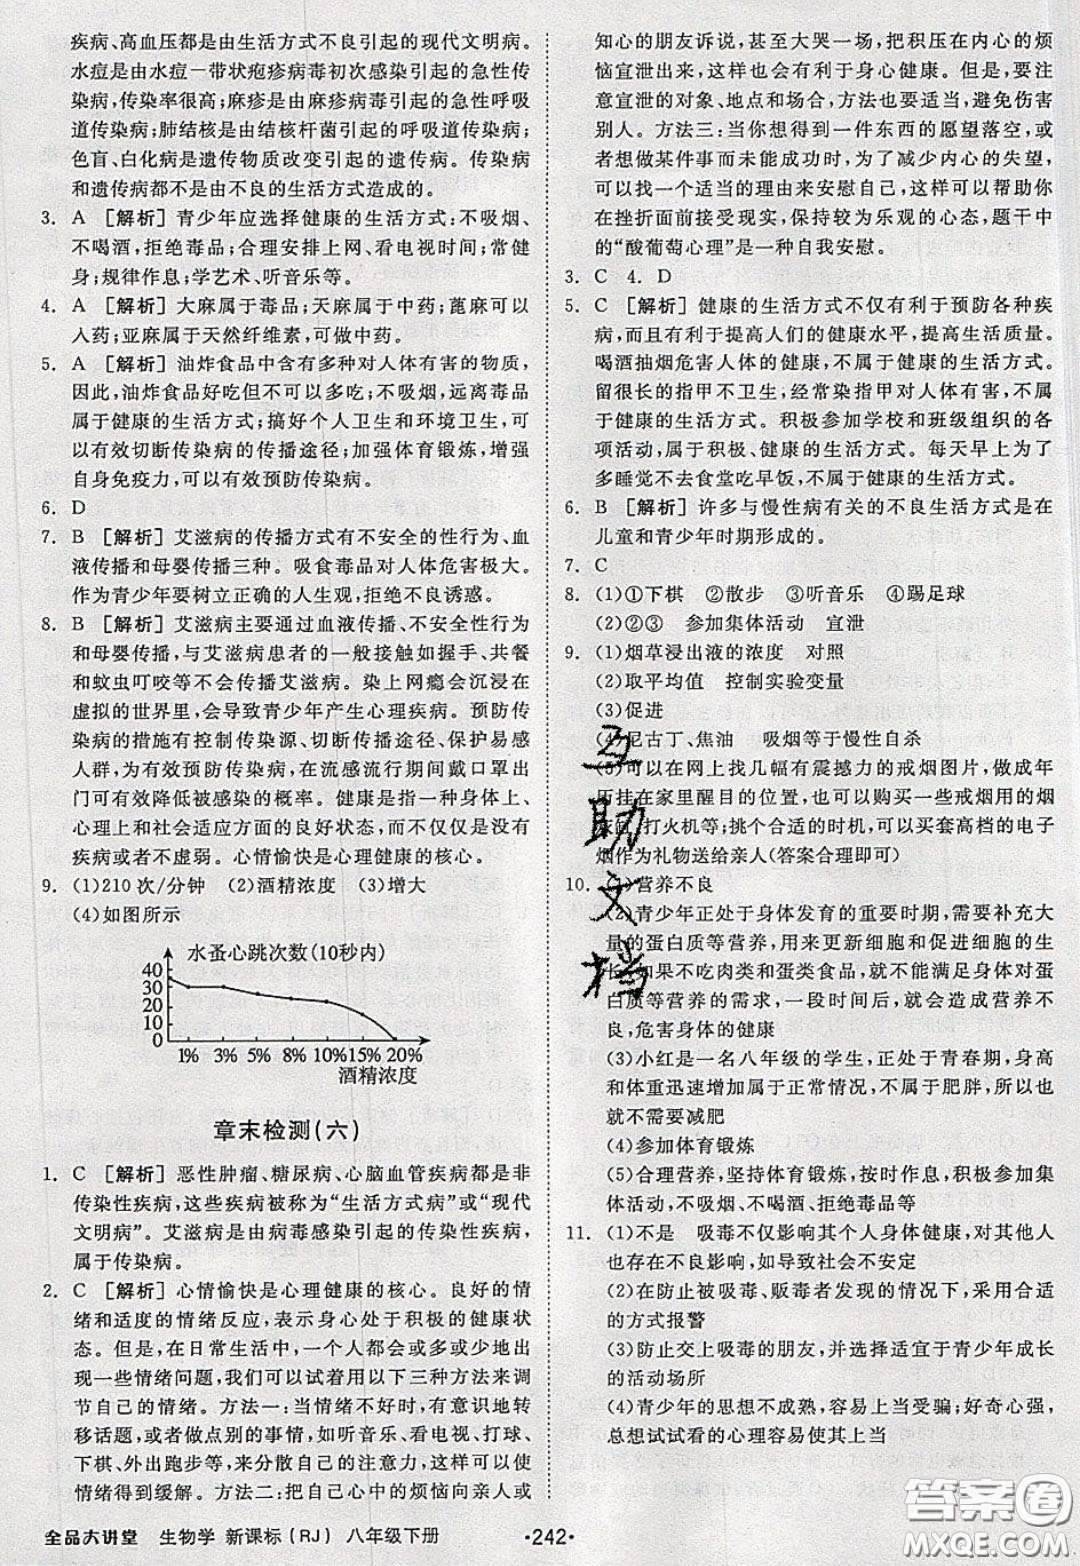 疾病、高血压都是由生活方式不良引起的现代文明病。
水痘是由水痘－带状疱疹病毒初次感染引起的急性传
染病,传染率很高;麻疹是由麻疹病毒引起的急性呼吸
道传染病;肺结核是由结核杆菌引起的呼吸道传染病;
色盲、白化病是遗传物质改变引起的遗传病。传染病
和遗传病都不是由不良的生活方式造成的。
3. A [解析] 青少年应选择健康的生活方式:不吸烟、
不喝酒,拒绝毒品;合理安排上网、看电视时间;常健
身;规律作息;学艺术、听音乐等。
4. A [解析] 大麻属于毒品;天麻属于中药;蓖麻可以
入药;亚麻属于天然纤维素,可做中药。
5. A [解析] 油炸食品中含有多种对人体有害的物质,
因此,油炸食品好吃但不可以多吃;不吸烟,远离毒品
属于健康的生活方式;搞好个人卫生和环境卫生,可
以有效切断传染病的传播途径;加强体育锻炼,增强
自身免疫力,可以有效预防传染病。
6. D
7. B [解析] 艾滋病的传播方式有不安全的性行为、血
液传播和母婴传播三种。吸食毒品对人体危害极大。
作为青少年要树立正确的人生观,拒绝不良诱惑。
8. B [解析] 艾滋病主要通过血液传播、不安全性行为
和母婴传播,与艾滋病患者的一般接触如握手、共餐
和蚊虫叮咬等不会传播艾滋病。染上网瘾会沉浸在
虚拟的世界里,会导致青少年产生心理疾病。预防传
染病的措施有控制传染源、切断传播途径、保护易感
人群,为有效预防流感,在流感流行期间戴口罩出
门可有效降低被感染的概率。健康是一种身体上、
心理上和社会适应方面的良好状态,而不仅仅是没有
疾病或者不虚弱。心情愉快是心理健康的核心。
9. (1)210 次/分钟 (2)酒精浓度 (3)增大
(4)如图所示
水蚤心跳次数(10秒内)
40
30
20
10
0
1% 3% 5% 8% 10% 15% 20%
酒精浓度
章末检测(六)
1. C [解析] 恶性肿瘤、糖尿病、心脑血管疾病都是非
传染性疾病,这些疾病被称为“生活方式病”或“现代
文明病”。艾滋病是由病毒感染引起的传染性疾病,
属于传染病。
2. C [解析] 心情愉快是心理健康的核心。良好的情
绪和适度的情绪反应,表示身心处于积极的健康状
态。但是,在日常生活中,一个人都会或多或少地出
现一些情绪问题,可以用以下几种方法来调节
自己的情绪。方法一:当情绪不好时,有意识地转
移话题,或者做点别的事情,如听音乐、看电视、打球、
下棋、外出跑步等,来分散自己的注意力,这样可以使
情绪得到缓解。方法二:把自己心中的烦恼向亲人或
知心的朋友诉说,甚至大哭一场,把积压在内心的烦
恼宣泄出来,这样也会有利于身心健康。但是,要注
意宣泄的对象、地点和场合,方法也要适当,避免伤害
别人。方法三:当你想得到一件东西的愿望落空,或者
想做某件事而未能成功时,为了减少内心的失望,
可以找一个适当的理由来安慰自己,这样可以帮助你
在挫折面前接受现实,保持较为乐观的心态,题干中
的“酸葡萄心理”是一种自我安慰。
3. C 4. D
5. C [解析] 健康的生活方式不仅有利于预防各种疾
病,而且有利于提高人们的健康水平,提高生活质量。
喝酒抽烟危害人体的健康,不属于健康的生活方式。
留很长的指甲不卫生,经常染指甲对人体有害,不属
于健康的生活方式。积极参加学校和班级组织的各
项活动,属于积极、健康的生活方式。每天早上为了
多睡觉不去食堂吃早饭,不属于健康的生活方式。
6. B [解析] 许多与慢性病有关的不良生活方式,是在
儿童和青少年时期形成的。
7. C
8. (1)①下棋 ②散步 ③听音乐 ④踢足球
(2)②③ 参加集体活动 宣泄
9. (1)烟草浸出液的浓度 对照
(2)取平均值 控制实验变量
(3)促进
(4)尼古丁、焦油 吸烟等于慢性自杀
(5)可以在网上找几幅有震撼力的戒烟图片,做成年
历挂在家里醒目的位置,也可以购买一些戒烟用的烟
灰缸、打火机等;挑个合适的时机,可以买套高档的电子
烟作为礼物送给亲人(答案合理即可)
10. (1)营养不良
(2)青少年正处于身体发育的重要时期,需要补充大
量的蛋白质等营养,用来更新细胞和促进细胞的生
长,如果不吃肉类和蛋类食品,就不能满足身体对蛋
白质等营养的需求,一段时间后,就会造成营养不
良,危害身体的健康
(3)小红是一名八年级的学生,正处于青春期,身高
和体重迅速增加属于正常情况,不属于肥胖,所以
不需要减肥
(4)参加体育锻炼
(5)合理营养,坚持体育锻炼,按时作息,积极参加集
体活动,不吸烟、不喝酒、拒绝毒品等
11. (1)不是 吸毒不仅影响其个人身体健康,对其他人
也存在不良影响,如导致社会不安定
(2)防止被吸毒、贩毒者发现的情况下,采用合适
的方式报警
(3)防止交上吸毒的朋友,选择适宜于青少年成长
的活动场所
(4)青少年的思想不成熟,容易上当受骗;好奇心强,
总想试试看的心理容易使其上当
互助文档
答案圈
全品大讲堂 生物学 新课标(RJ) 八年级下册 ·242·